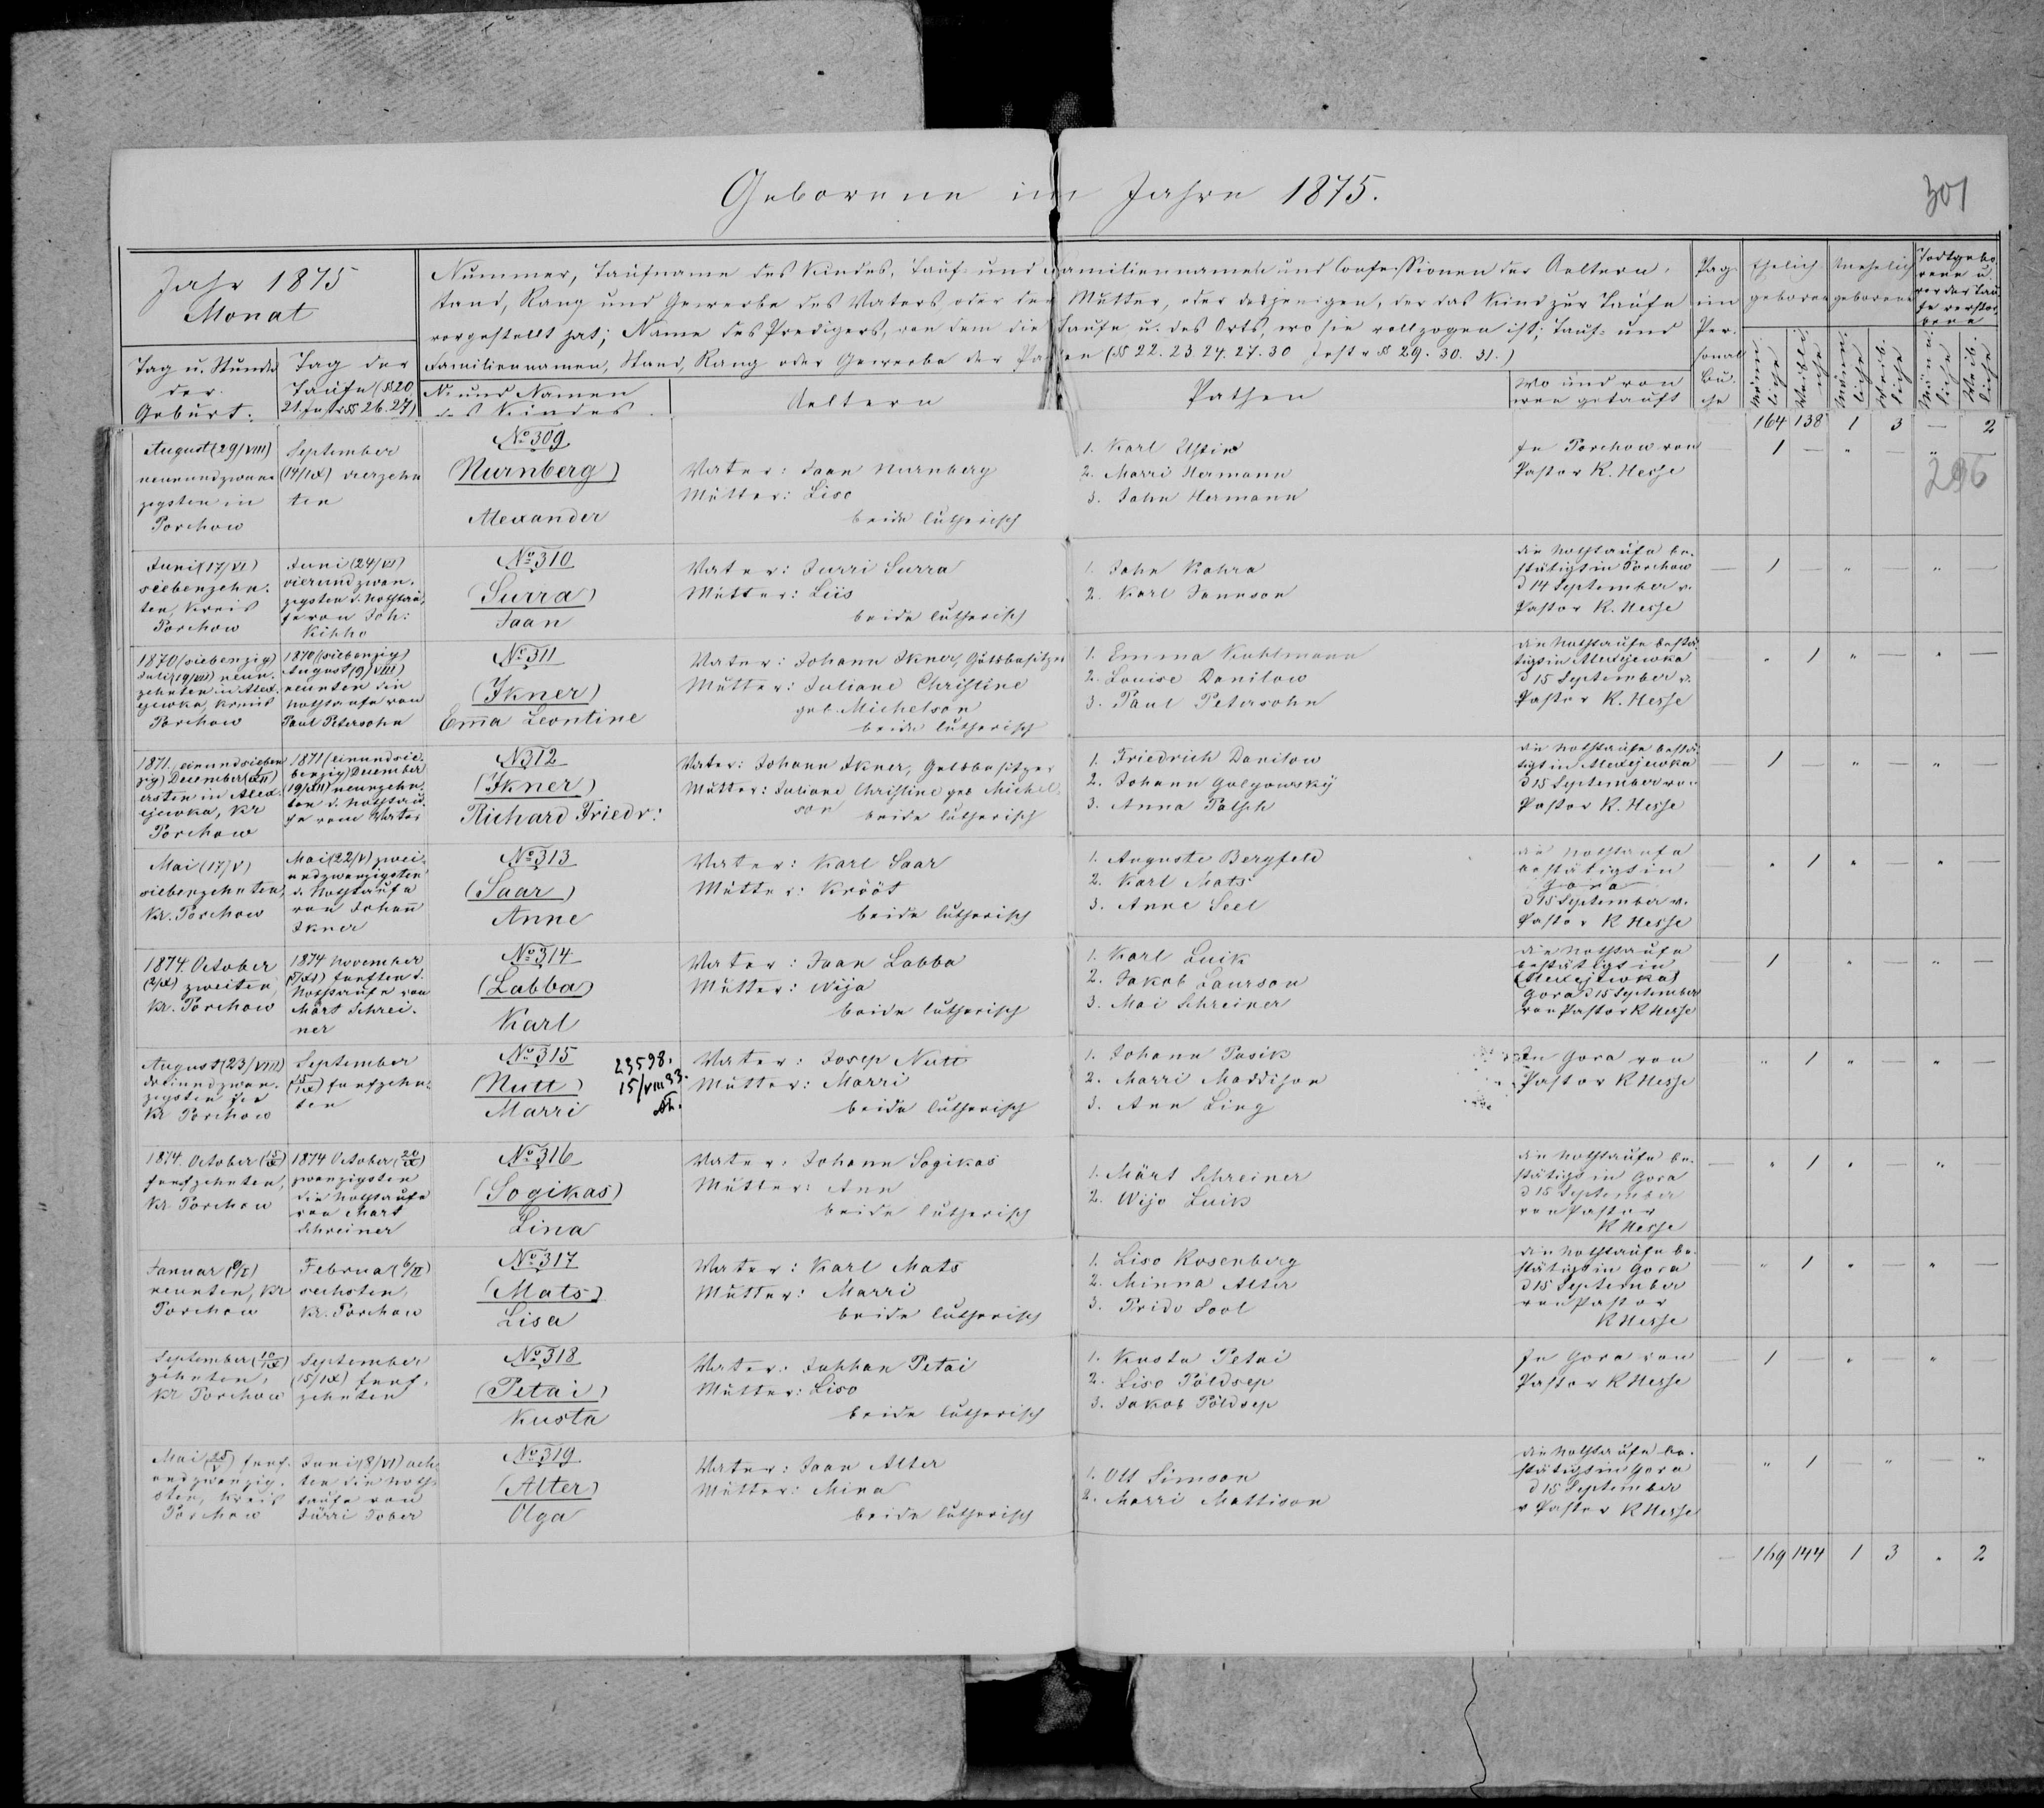 Geborene im Jahre 1875.
301
Jahr 1875
Monat
Tag u. Stunde
der
Geburt.
Tag der
Taufe (§§ 20
21. Instr. §§ 26. 27)
Nummer, Taufname des Kindes, Tauf- und Familiennamen und Confessionen der Aeltern,
tand, Rang und Gewerbe des Vaters oder der Mutter, oder desjenigen, der das Kind zur Taufe
vorgestellt hat; Name des Predigers, von dem die Taufe, u. des Orts, wo sie vollzogen ist; Tauf- und
Familiennamen, Stand, Rang oder Gewerbe der Pathen (§§ 22. 23. 24. 27. 30 Instr §§ 29. 30. 31.)
No und Namen
des Kindes.
Aeltern
Pathen
Wo und von
wem getauft
Pag.
im
Per-
sonal
Bu-
che
Ehelich
geboren
Männ-
liche
Weibli-
che
Unehelich
geborene
Männ-
liche
Weib-
liche
Todtgebo-
rene u.
vor der Tau-
fe verstor-
bene
Männ-
liche
Weib-
liche
164 138 1 3 — 2
August (29/VIII)
neunundzwan-
zigsten in
Porchow
September
(14/IX) vierzehn
ten
No 309
(Nurnberg)
Alexander
Vater: Jaan Nurnberg
Mutter: Liso
beide lutherisch
1. Karl Ustin
2. Marri Hermann
3. Jahn Hermann
In Porchow von
Pastor K. Hesse
— 1 — " — " —
296
Juni (17/VI)
siebenzehn-
ten, Kreis
Porchow
Juni (24/VI)
vierundzwan-
zigsten d. Nothtau-
fe von Joh:
Kikho
No 310
(Surra)
Jaan
Vater: Jurri Surra
Mutter: Liis
beide lutherisch
1. Jahn Kahra
2. Karl Jannson
die Nothtaufe be-
stätigt in Porchow
d 14 September v.
Pastor K. Hesse
— 1 — " — " —
1870 (siebenzig)
Juli (19/VII) neun-
zehnten in Alex-
ejewka, Kreis
Porchow
1870 (siebenzig)
August (9/VIII)
neunten die
Nothtaufe von
Paul Petersohn
No 311
(Ikner)
Em̄a Leontine
Vater: Johann Ikner, Gutsbesitzer
Mutter: Juliane Christine
geb. Michelson
beide lutherisch
1. Emma Kuhlmann
2. Louise Danilow
3. Paul Petersohn
die Nothtaufe bestä-
tigt in Alexejewka
d 15 September v.
Pastor K. Hesse
" 1 " — " —
1871 (einundsieben
zig) December (1/XII)
ersten in Alex-
ejewka, Kr
Porchow
1871 (einundsie-
benzig) December
(19/XII) neunzehn-
ten d. Nothtau-
fe vom Vater
No 312
(Ikner)
Richard Friedr:
Vater: Johann Ikner, Gutsbesitzer
Mutter: Juliane Christine geb Michel-
son beide lutherisch
1. Friedrich Danilow
2. Johann Golgowsky
3. Anna Palsch
die Nothtaufe bestä-
tigt in Alexejewka
d 15 September von
Pastor K. Hesse
— 1 — " — " —
Mai (17/V)
siebenzehnten,
Kr. Porchow
Mai (22/V) zwei-
undzwanzigsten
d. Nothtaufe
von Johan̄
Ikner
No 313
(Saar)
Anne
Vater: Karl Saar
Mutter: Krööt
beide lutherisch
1. Auguste Bergfeld
2. Karl Mats
3. Anne Seel
die Nothtaufe
bestätigt in
Gora
d 15 September v.
Pastor K Hesse
— " 1 " — " —
1874. October
(2/X) zweiten
Kr. Porchow
1874 November
(5/XI) fünften d.
Nothtaufe von
Märt Schrei-
ner
No 314
(Labba)
Karl
Vater: Jaan Labba
Mutter: Wija
beide lutherisch
1. Karl Luik
2. Jakob Laurson
3. Mai Schreiner
die Nothtaufe
bestätigt in
(Alexejewka)
Gora d 15 September
von Pastor K Hesse
— 1 " — " —
August (23/VIII)
dreiundzwan-
zigsten
Kr Porchow
September
(15/IX) funfzehn-
ten
No 315
(Nutt)
Marri
23598.
15/VIII 33.
Vater: Josep Nutt
Mutter: Marri
beide lutherisch
1. Johann Pasik
2. Marri Maddison
3. Ann Ling
In Gora von
Pastor K Hesse
" 1 " — " —
1874. October (15/X)
funfzehnten,
Kr. Porchow
1874 October (20/X)
zwanzigsten
die Nothtaufe
von Märt
Schreiner
No 316
(Sogikas)
Lina
Vater: Johann Sogikas
Mutter: Ann
beide lutherisch
1. Märt Schreiner
2. Wijo Luik
die Nothtaufe be-
stätigt in Gora
d 15 September
von Pastor
K Hesse
— " 1 " — "
Januar (9/I)
neunten, Kr
Porchow
Februa (6/II)
sechsten,
Kr. Porchow
No 317
(Mats)
Lisa
Vater: Karl Mats
Mutter: Marri
beide lutherisch
1. Liso Rosenberg
2. Minna Alter
3. Prido Sool
die Nothtaufe be-
stätigt in Gora
d 15 September
von Pastor
K Hesse
— " 1 " — " —
September (10/IX)
zehnten,
Kr Porchow
September
(15/IX) funf-
zehnten
No 318
(Petai)
Kusta
Vater: Juhhan Petai
Mutter: Liso
beide lutherisch
1. Kusta Petai
2. Liso Pöldsep
3. Jakob Pöldsep
In Gora von
Pastor K Hesse
— 1 — " — " —
Mai (25/V) funf-
undzwanzig-
sten, Kreis
Porchow
Juni (8/VI) ach-
ten die Noth-
taufe von
Jürri Tober
No 319
(Alter)
Olga
Vater: Jaan Alter
Mutter: Mina
beide lutherisch
1. Ott Simson
2. Marri Mattison
die Nothtaufe be-
stätigt in Gora
d 15 September
v Pastor K Hesse
— " 1 — " — "
— 169 144 1 3 " 2